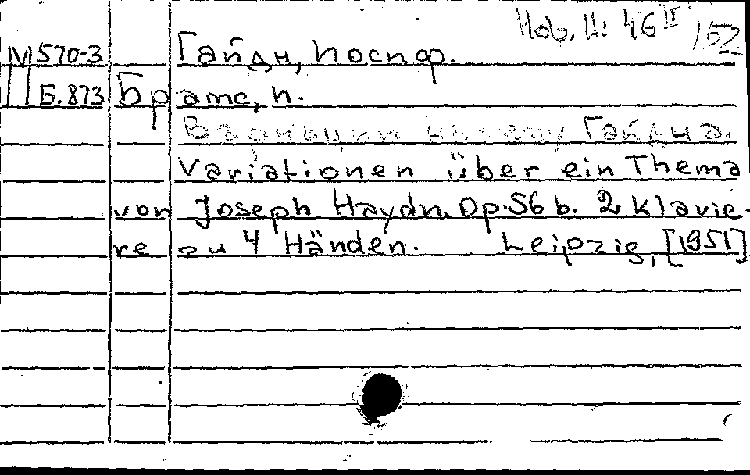 Нов. Ц. 46 II /52
М 570-3 Гайдн, Иосиф.
П Б.873 Брамс, И.
Вариации на тему Гайдна.
Variationen über ein Thema
von Joseph Haydn. Op. 56 b. 2 Klavie-
re zu 4 Händen. Leipzig, [1951]